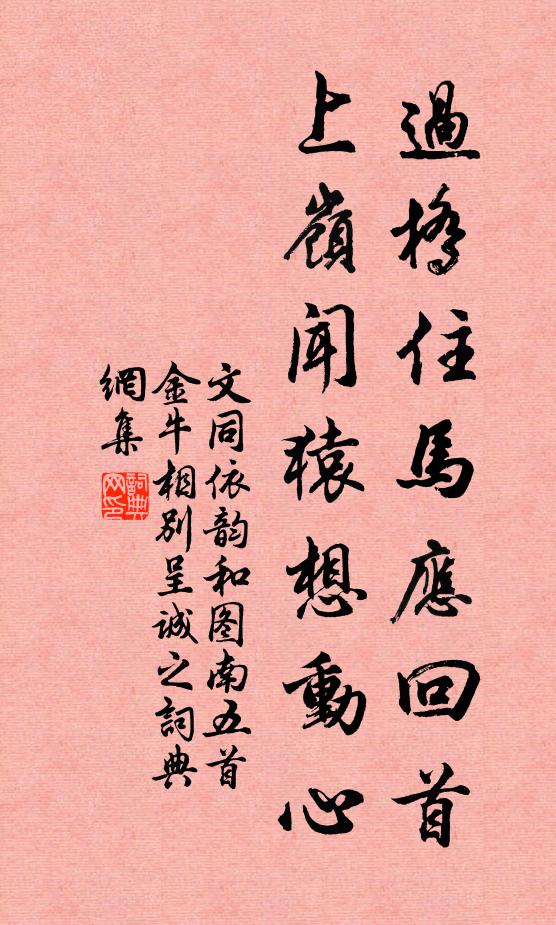 過橋住馬應回首
上嶺聞猿想動心
文同依韵和图南五首
金牛相別呈誠之詞典
網集
詞典
网印